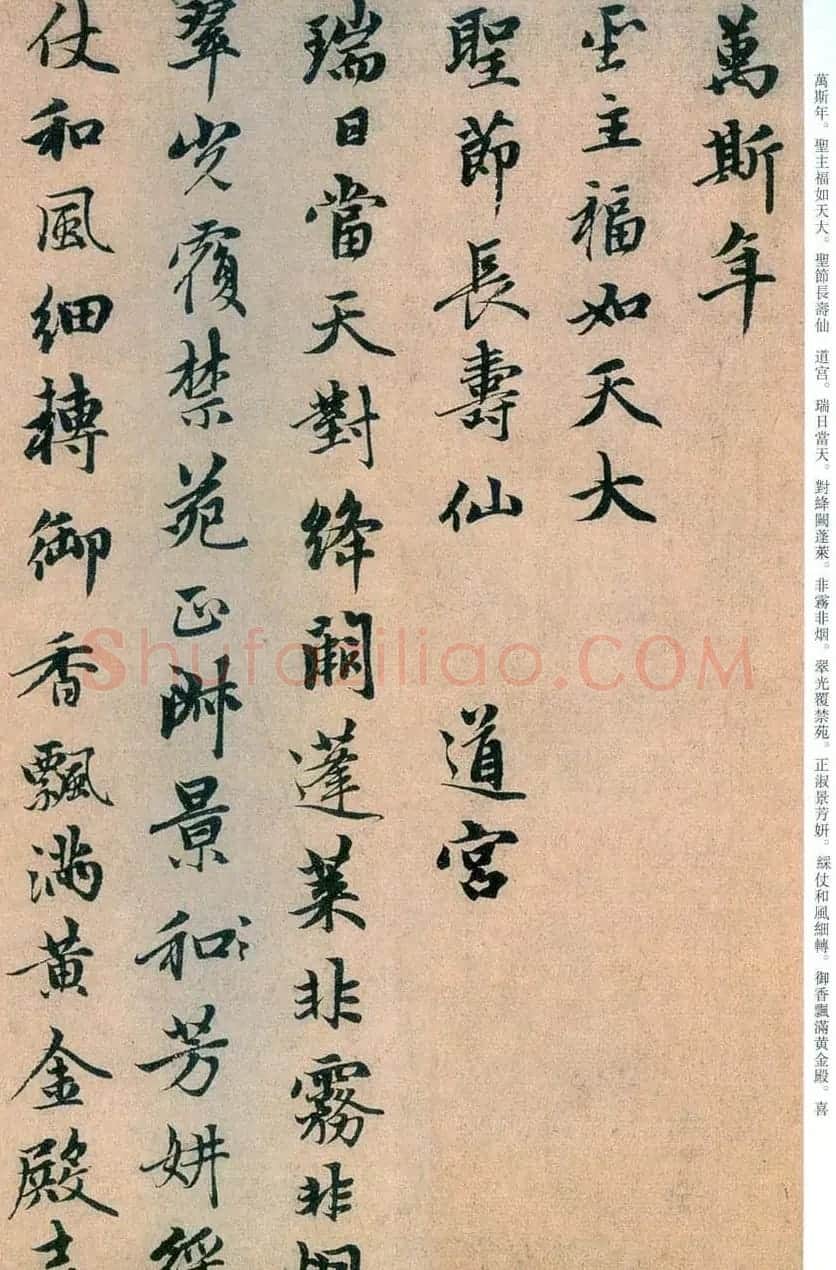 萬斯年
聖主福如天大
聖節長壽仙 道宮
瑞日當天對絳闕蓬萊非霧非烟
翠光覆禁苑正淑景和芳妍綵
仗和風細轉御香飄滿黃金殿喜
萬斯年。聖主福如天大。聖節長壽仙 道宮。瑞日當天。對絳闕蓬萊。非霧非烟。翠光覆禁苑。正淑景芳妍。綵仗和風細轉。御香飄滿黃金殿。喜
Shufaziliao.COM